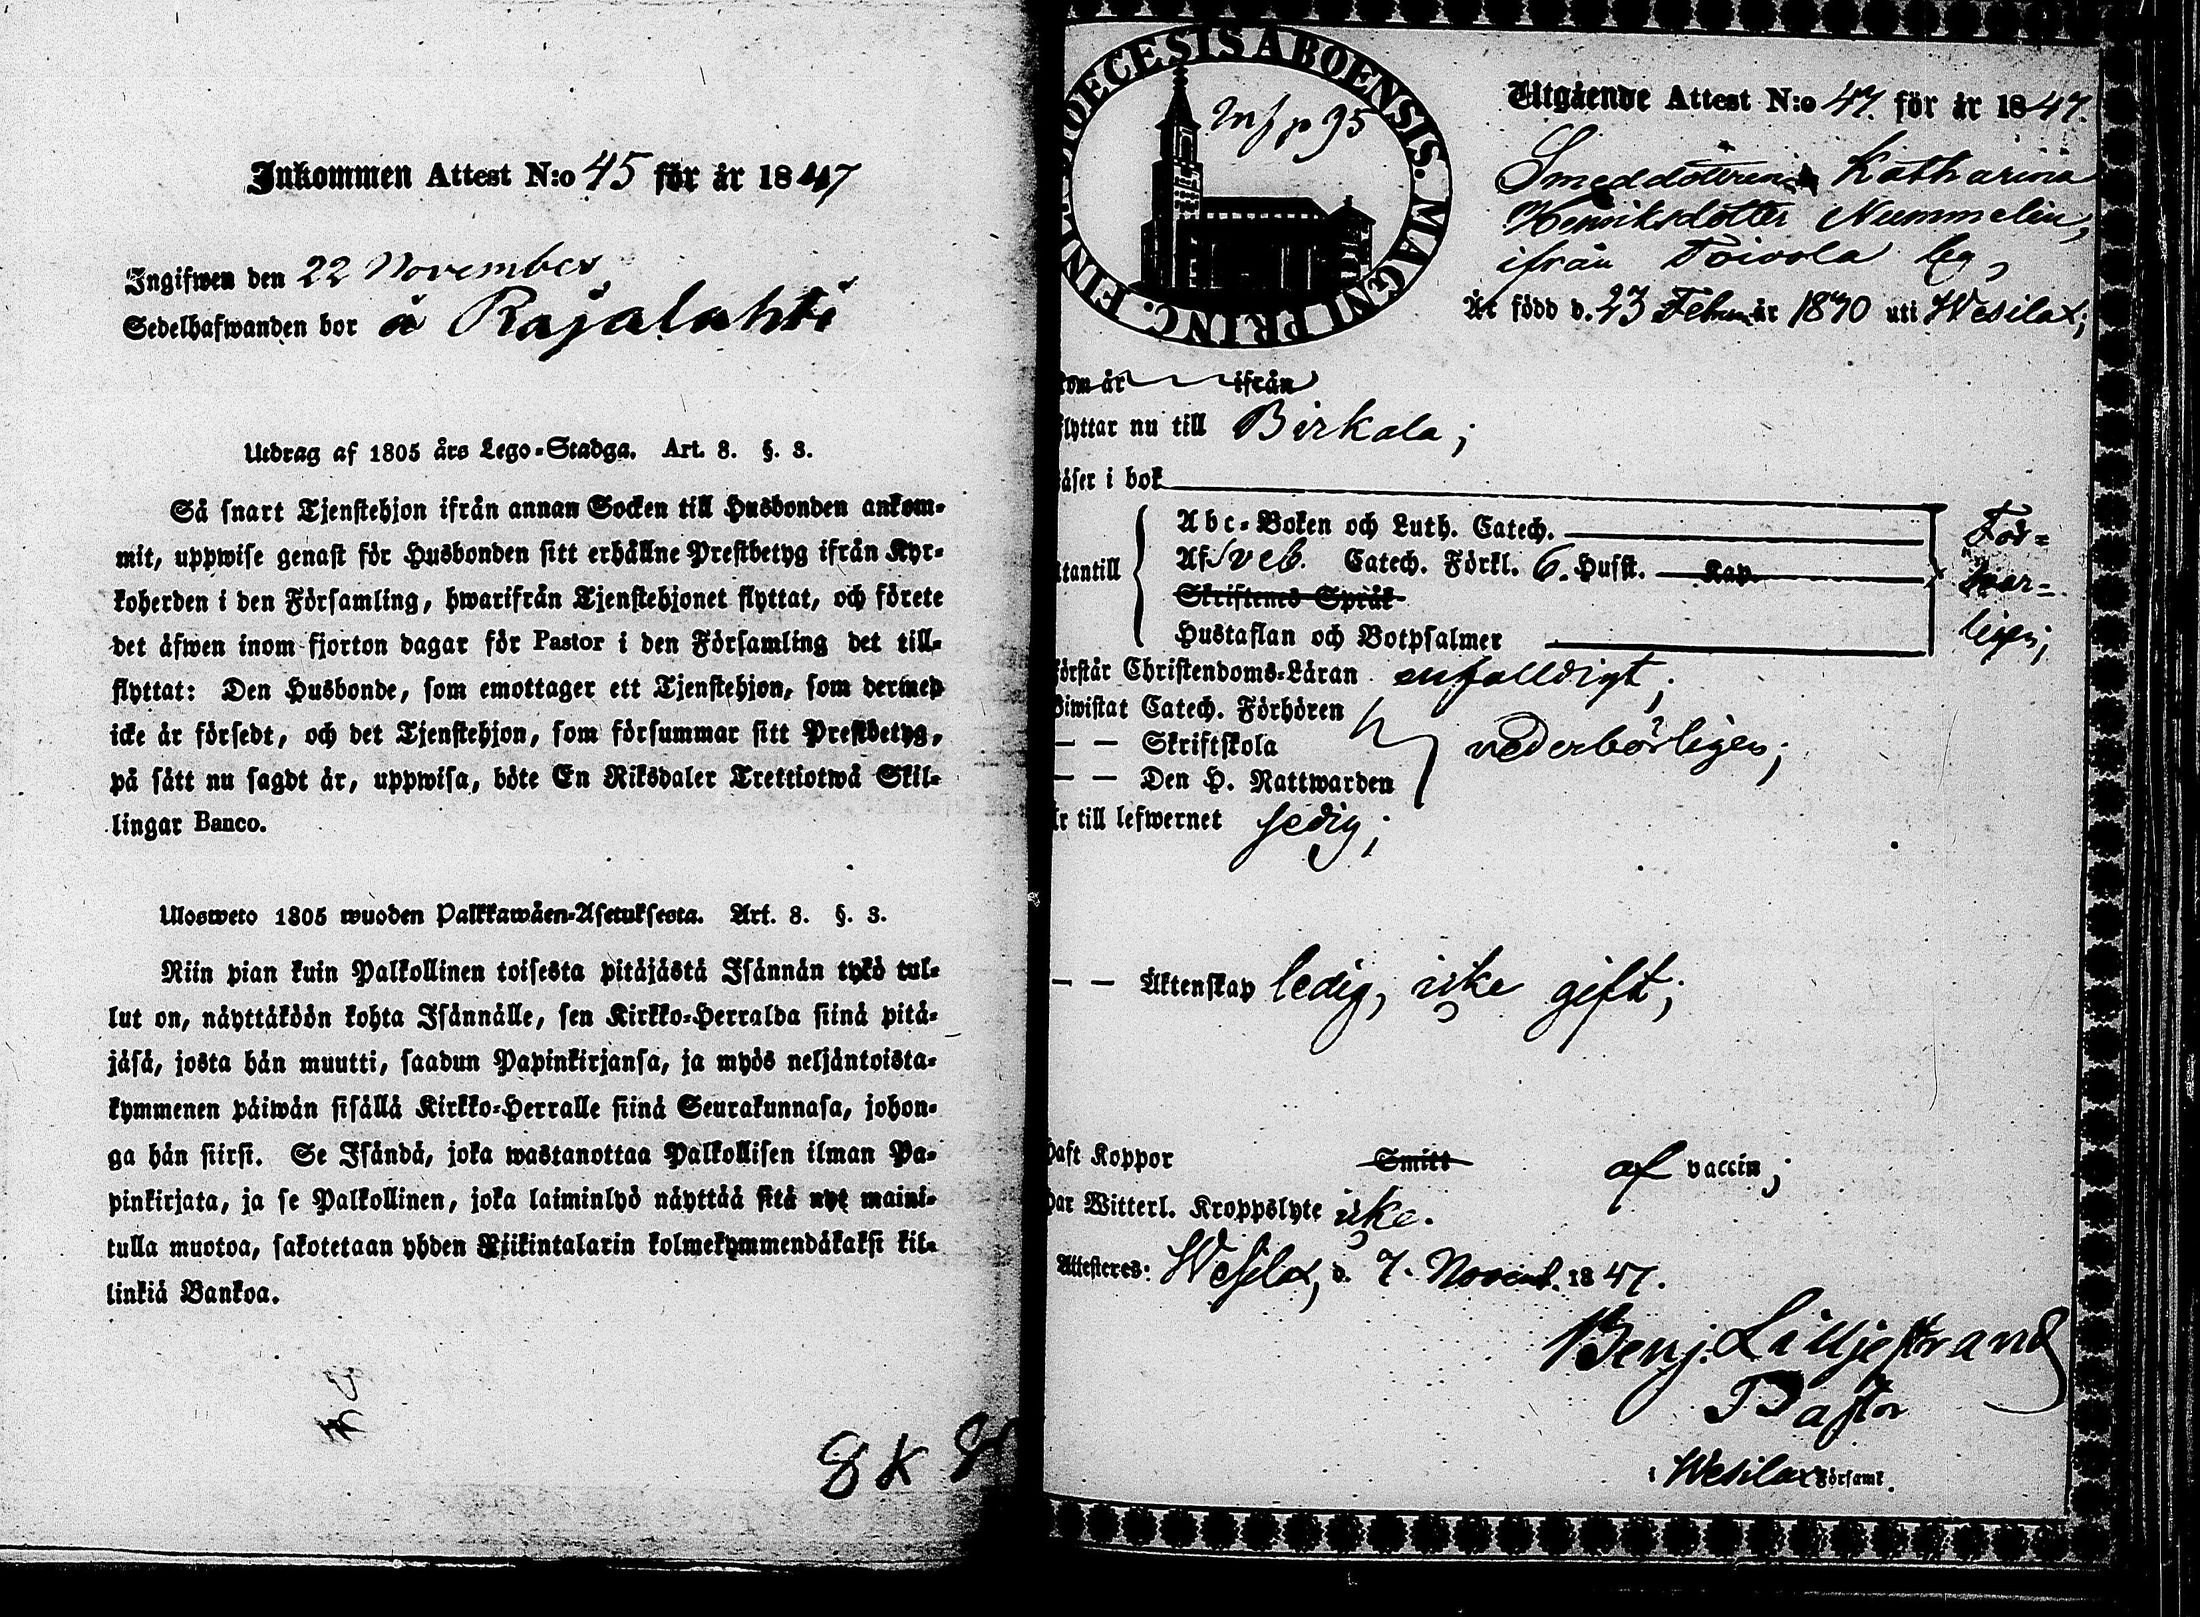 Inkommen Attest N:o 45 för år 1847
Ingifwen den 22 November
Sedelhafwanden bor å Rajalahti
Utdrag af 1805 års Lego-Stadga. Art. 8. §. 3.
Så snart Tjenstehjon ifrån annan Socken till Husbonden ankom-
mit, uppwise genast för Husbonden sitt erhållne Prestbetyg ifrån Kyr-
koherden i den Församling, hwarifrån Tjenstehjonet flyttat, och förete
det äfwen inom fjorton dagar för Pastor i den Församling det till-
flyttat: Den Husbonde, som emottager ett Tjenstehjon, som dermed
icke är försedt, och det Tjenstehjon, som försummar sitt Prestbetyg,
på sätt nu sagdt är, uppwisa, böte En Riksdaler Trettiotwå Skil-
lingar Banco.
Ulosweto 1805 wuoden Palkkawäen-Asetuksesta. Art. 8. §. 3.
Niin pian kuin Palkollinen toisesta pitäjästä Isännän tykö tul-
lut on, näyttäköön kohta Isännälle, sen Kirkko-Herralda siinä pitä-
jäsä, josta hän muutti, saadun Papinkirjansa, ja myös neljäntoista-
kymmenen päiwän sisällä Kirkko-Herralle siinä Seurakunnasa, johon-
ga hän siirsi. Se Isändä, joka wastanottaa Palkollisen ilman Pa-
pinkirjata, ja se Palkollinen, joka laiminlyö näyttää sitä nyt maini-
tulla muotoa, sakotetaan yhden Riikintalarin kolmekymmendäkaksi kil-
linkiä Bankoa.
8 K 8
DIOECESIS ABOENSIS. MAGNI PRINC. FINL.
Inf p 95
Utgående Attest N:o 47. för år 1847.
Smeddottren Katharina
Henriksdotter Nummelin,
ifrån Toivola by,
Är född d. 23 Febru. år 1830 uti Wesilax;
kom år ifrån
flyttar nu till Birkala;
läser i bok
Utantill
Abc-Boken och Luth. Catech.
Af Sveb. Catech. Förkl. 6. Husst. Kap.
Skriftenes Språk
Hustaflan och Botpsalmer
För-
svar-
ligen;
förstår Christendoms-Läran enfalldigt;
Biwistat Catech. Förhören
— — Skriftskola
— — Den H. Nattwarden
vederbörligen;
Är till lefwernet sedig;
— — Äktenskap ledig, icke gift;
Haft Koppor Smitt af vaccin;
Har Witterl. Kroppslyte icke.
Attesteres: Wesilax, d. 7. Novemb. 1847.
Benj. Lilljestrand
Pastor
i Wesilax Församl.